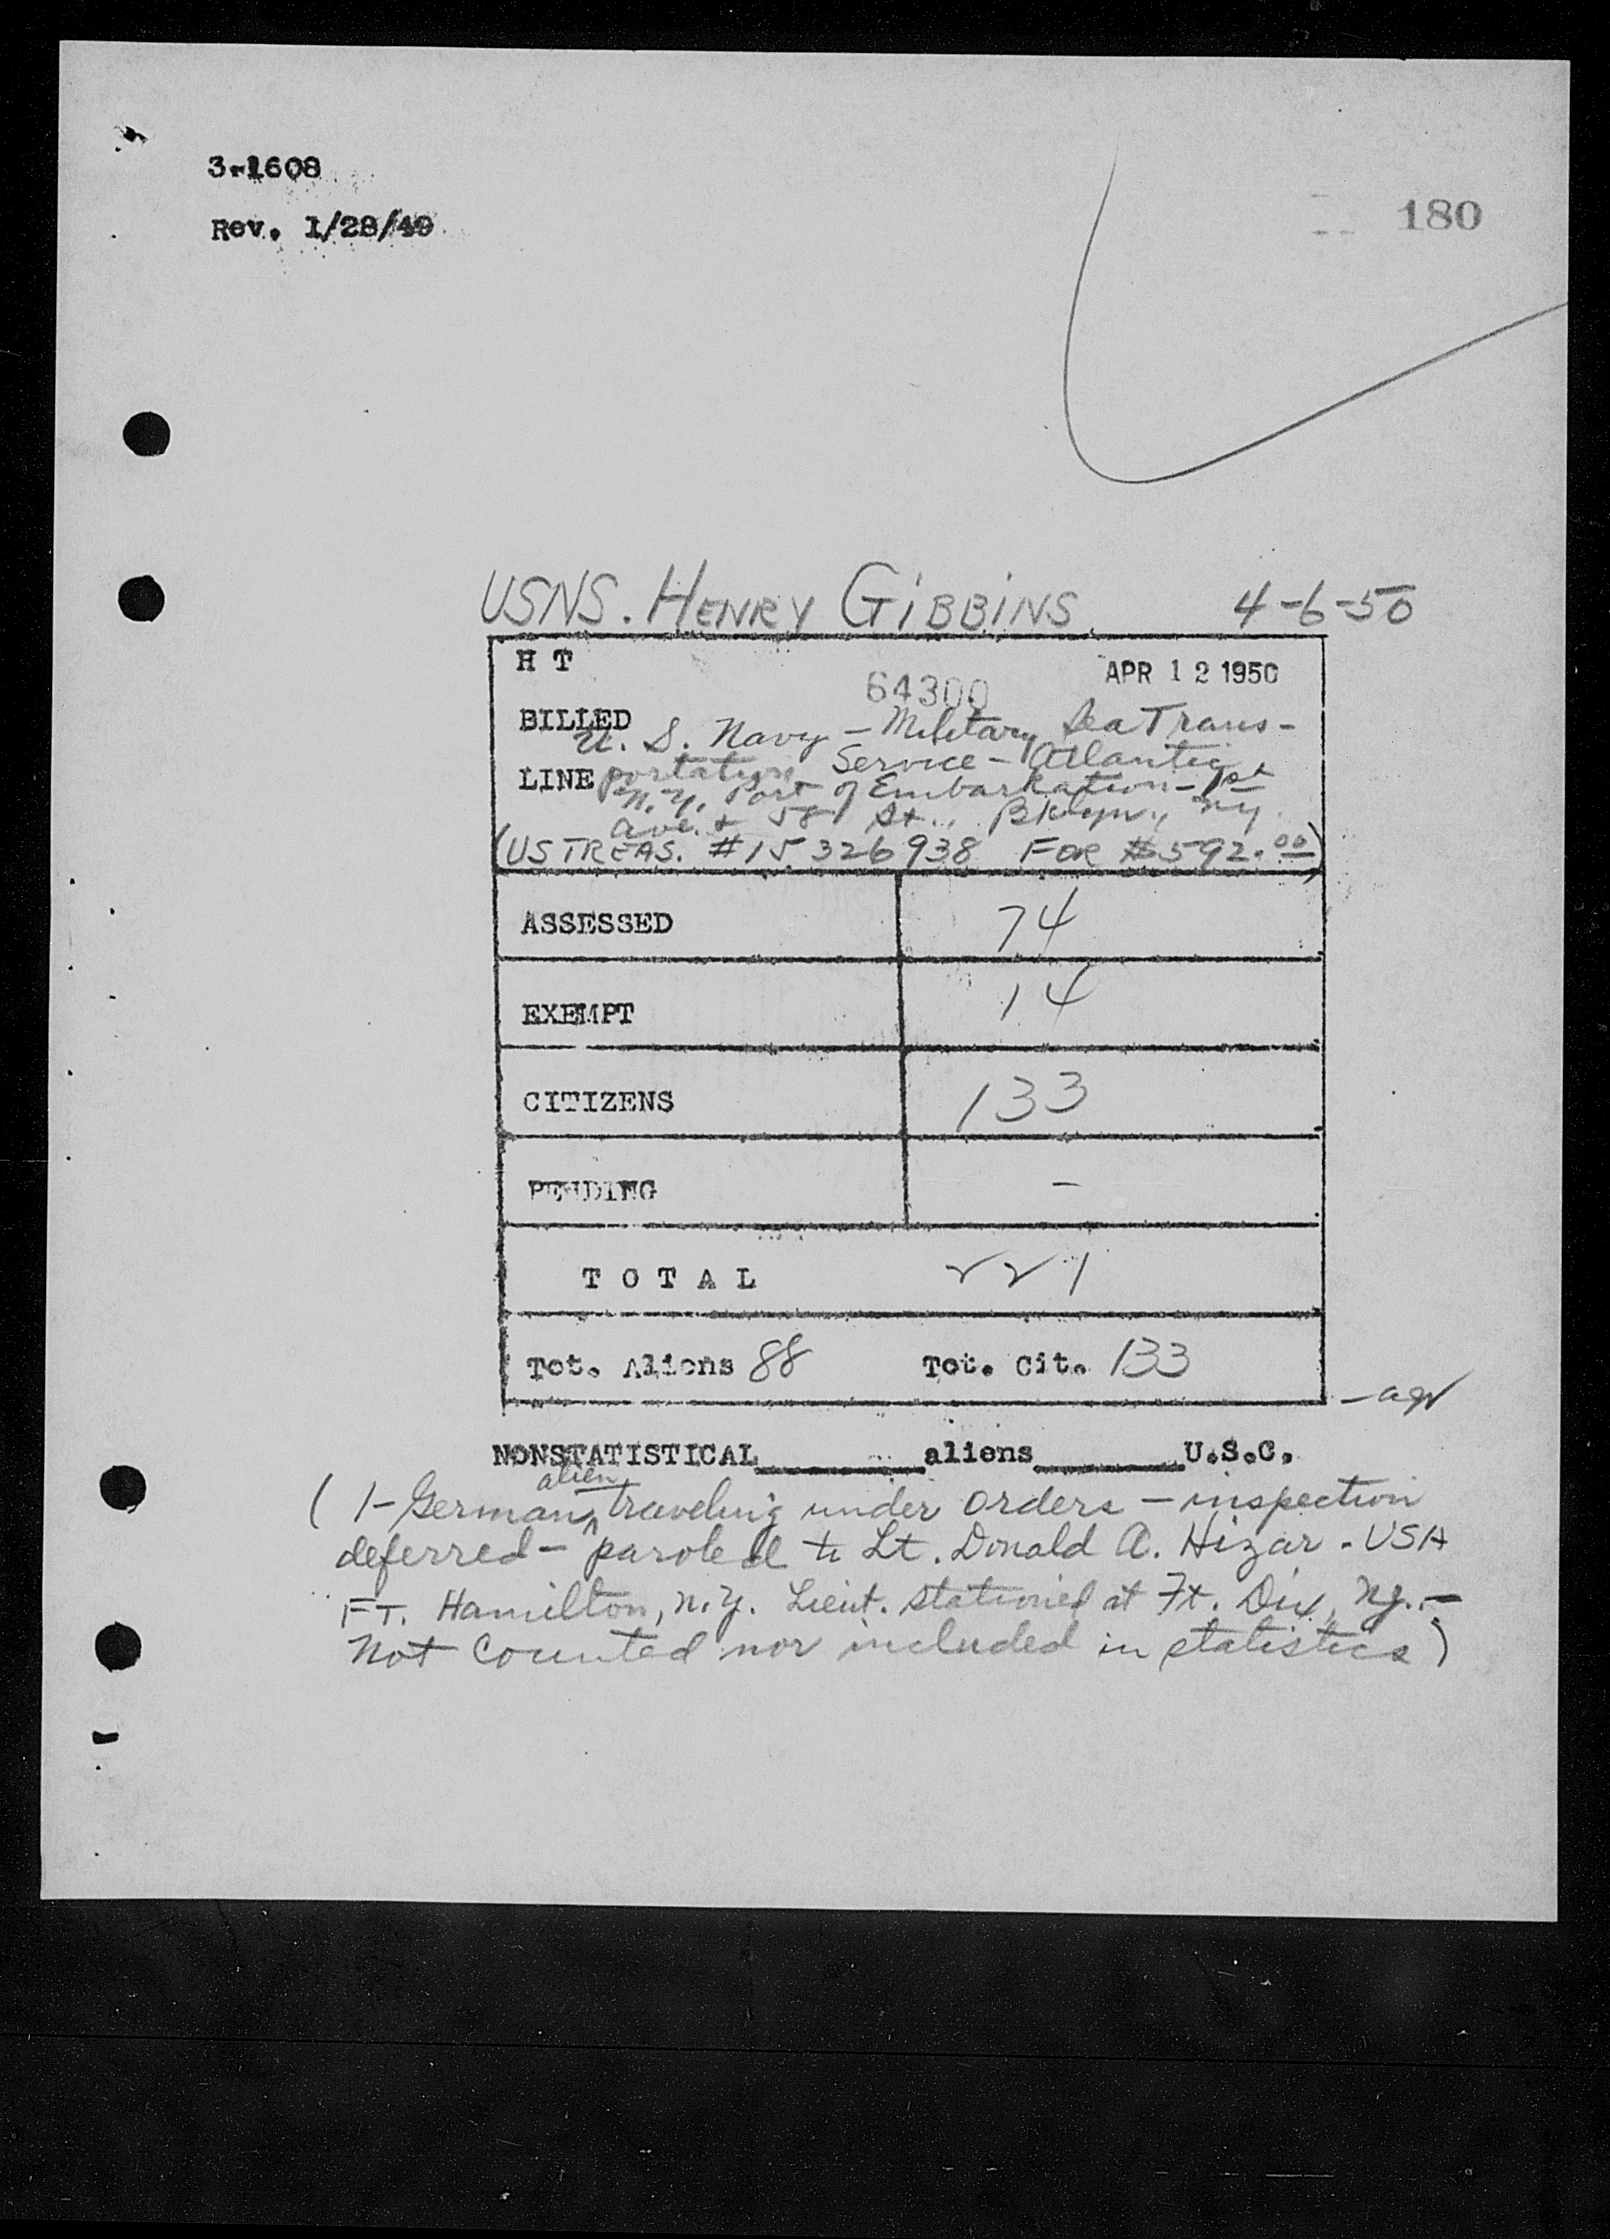 3-1608
180
Rev. 1/28/49
USNS. HENRY GIBBINS 4-6-50
H T
64300 APR 12 1950
BILLED
U. S. Navy - Military Sea Trans-
LINE portation Service - Atlantic
N.Y. Port of Embarkation - 1st
Ave. & 58 St., Bklyn., NY.
(US TREAS. #15 326938 FOR $592.00)
ASSESSED 74
EXEMPT 14
CITIZENS 133
PENDING -
T O T A L 221
Tot. Aliens 88 Tot. Cit. 133
NONSTATISTICAL aliens U.S.C.
( 1- German alien traveling under orders - inspection
deferred - paroled to Lt. Donald A. Hizar - USA
FT. Hamilton, N.Y. Lieut. stationed at Ft. Dix, NJ. -
Not counted nor included in statistics)